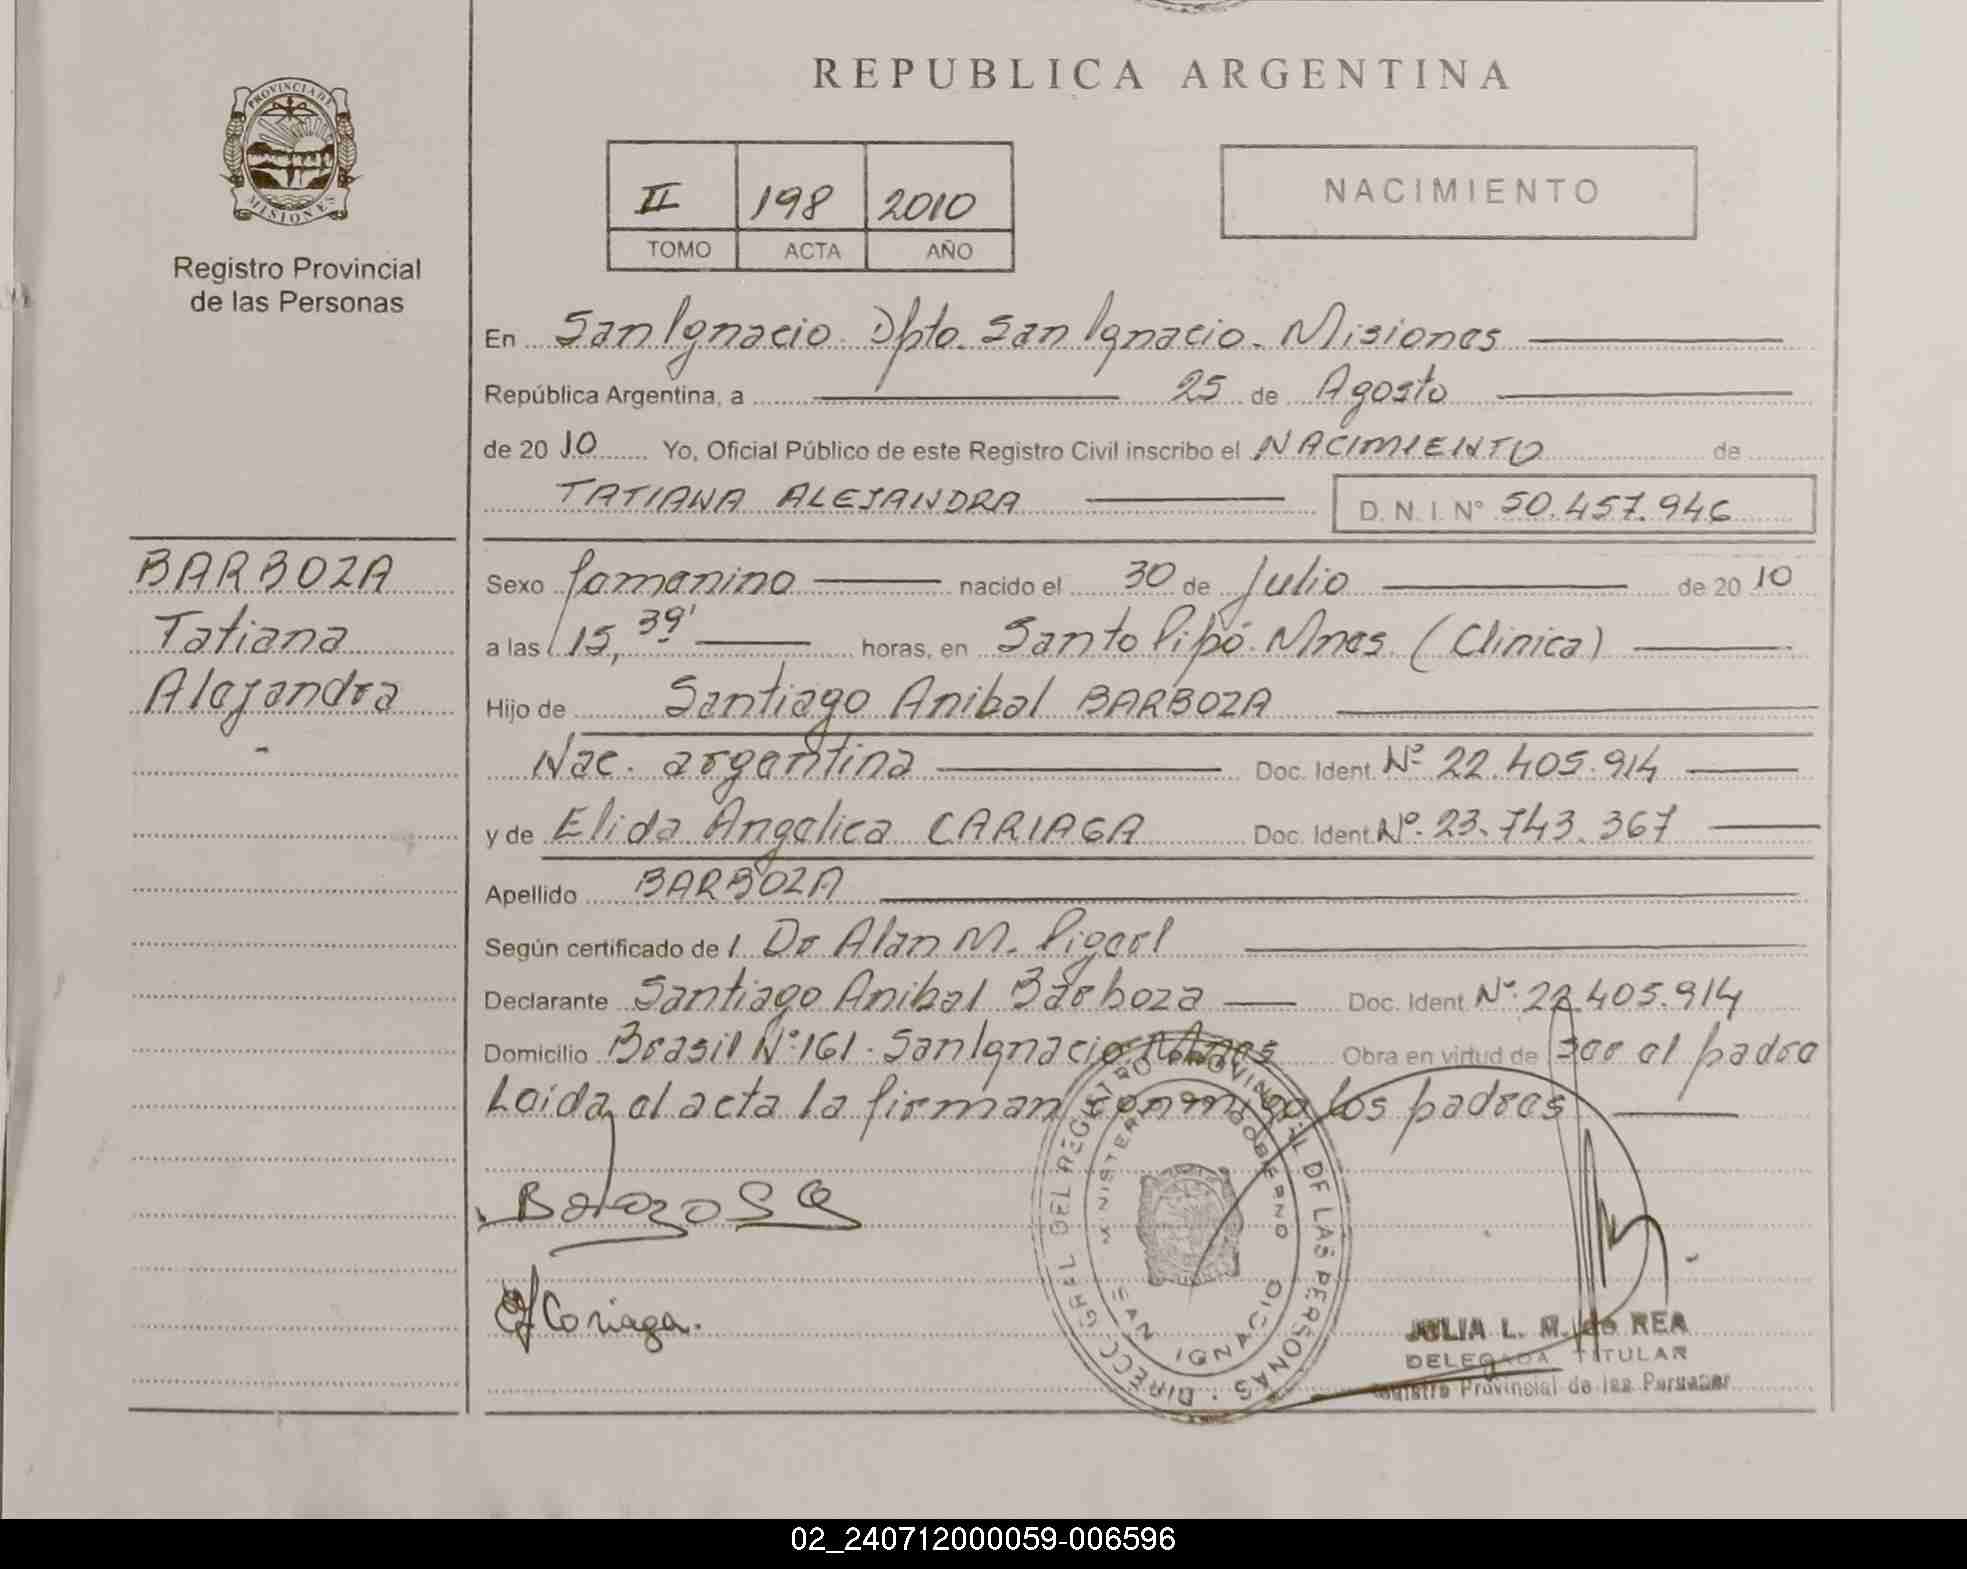 REPUBLICA ARGENTINA
PROVINCIA DE
MISIONES
Registro Provincial
de las Personas
II 198 2010
TOMO ACTA AÑO
NACIMIENTO
En San Ignacio. Dpto. San Ignacio. Misiones
República Argentina, a 25 de Agosto
de 2010 Yo, Oficial Público de este Registro Civil inscribo el NACIMIENTO de
TATIANA ALEJANDRA D. N. I. N° 50.457.946
BARBOZA
Tatiana
Alejandra
Sexo femenino nacido el 30 de Julio de 2010
a las 15, 39' horas, en Santo Pipó. Mnes. (Clinica)
Hijo de Santiago Anibal BARBOZA
Nac. argentina Doc. Ident. Nº 22.405.914
y de Elida Angelica CARIAGA Doc. Ident. Nº. 23.743.367
Apellido BARBOZA
Según certificado de Dr Alan M.
Declarante Santiago Anibal Barboza Doc. Ident. Nº. 22.405.914
Domicilio Brasil Nº 161. San Ignacio. Mnes Obra en virtud de ser el padre
Leida el acta la firman conmigo los padres
DIRECC GRAL DEL REGISTRO PROVINCIAL DE LAS PERSONAS
MINISTERIO DE GOBIERNO
SAN IGNACIO
Cariaga.
JULIA L. M. de REA
DELEGADA TITULAR
Registro Provincial de las Personas
02_240712000059-006596